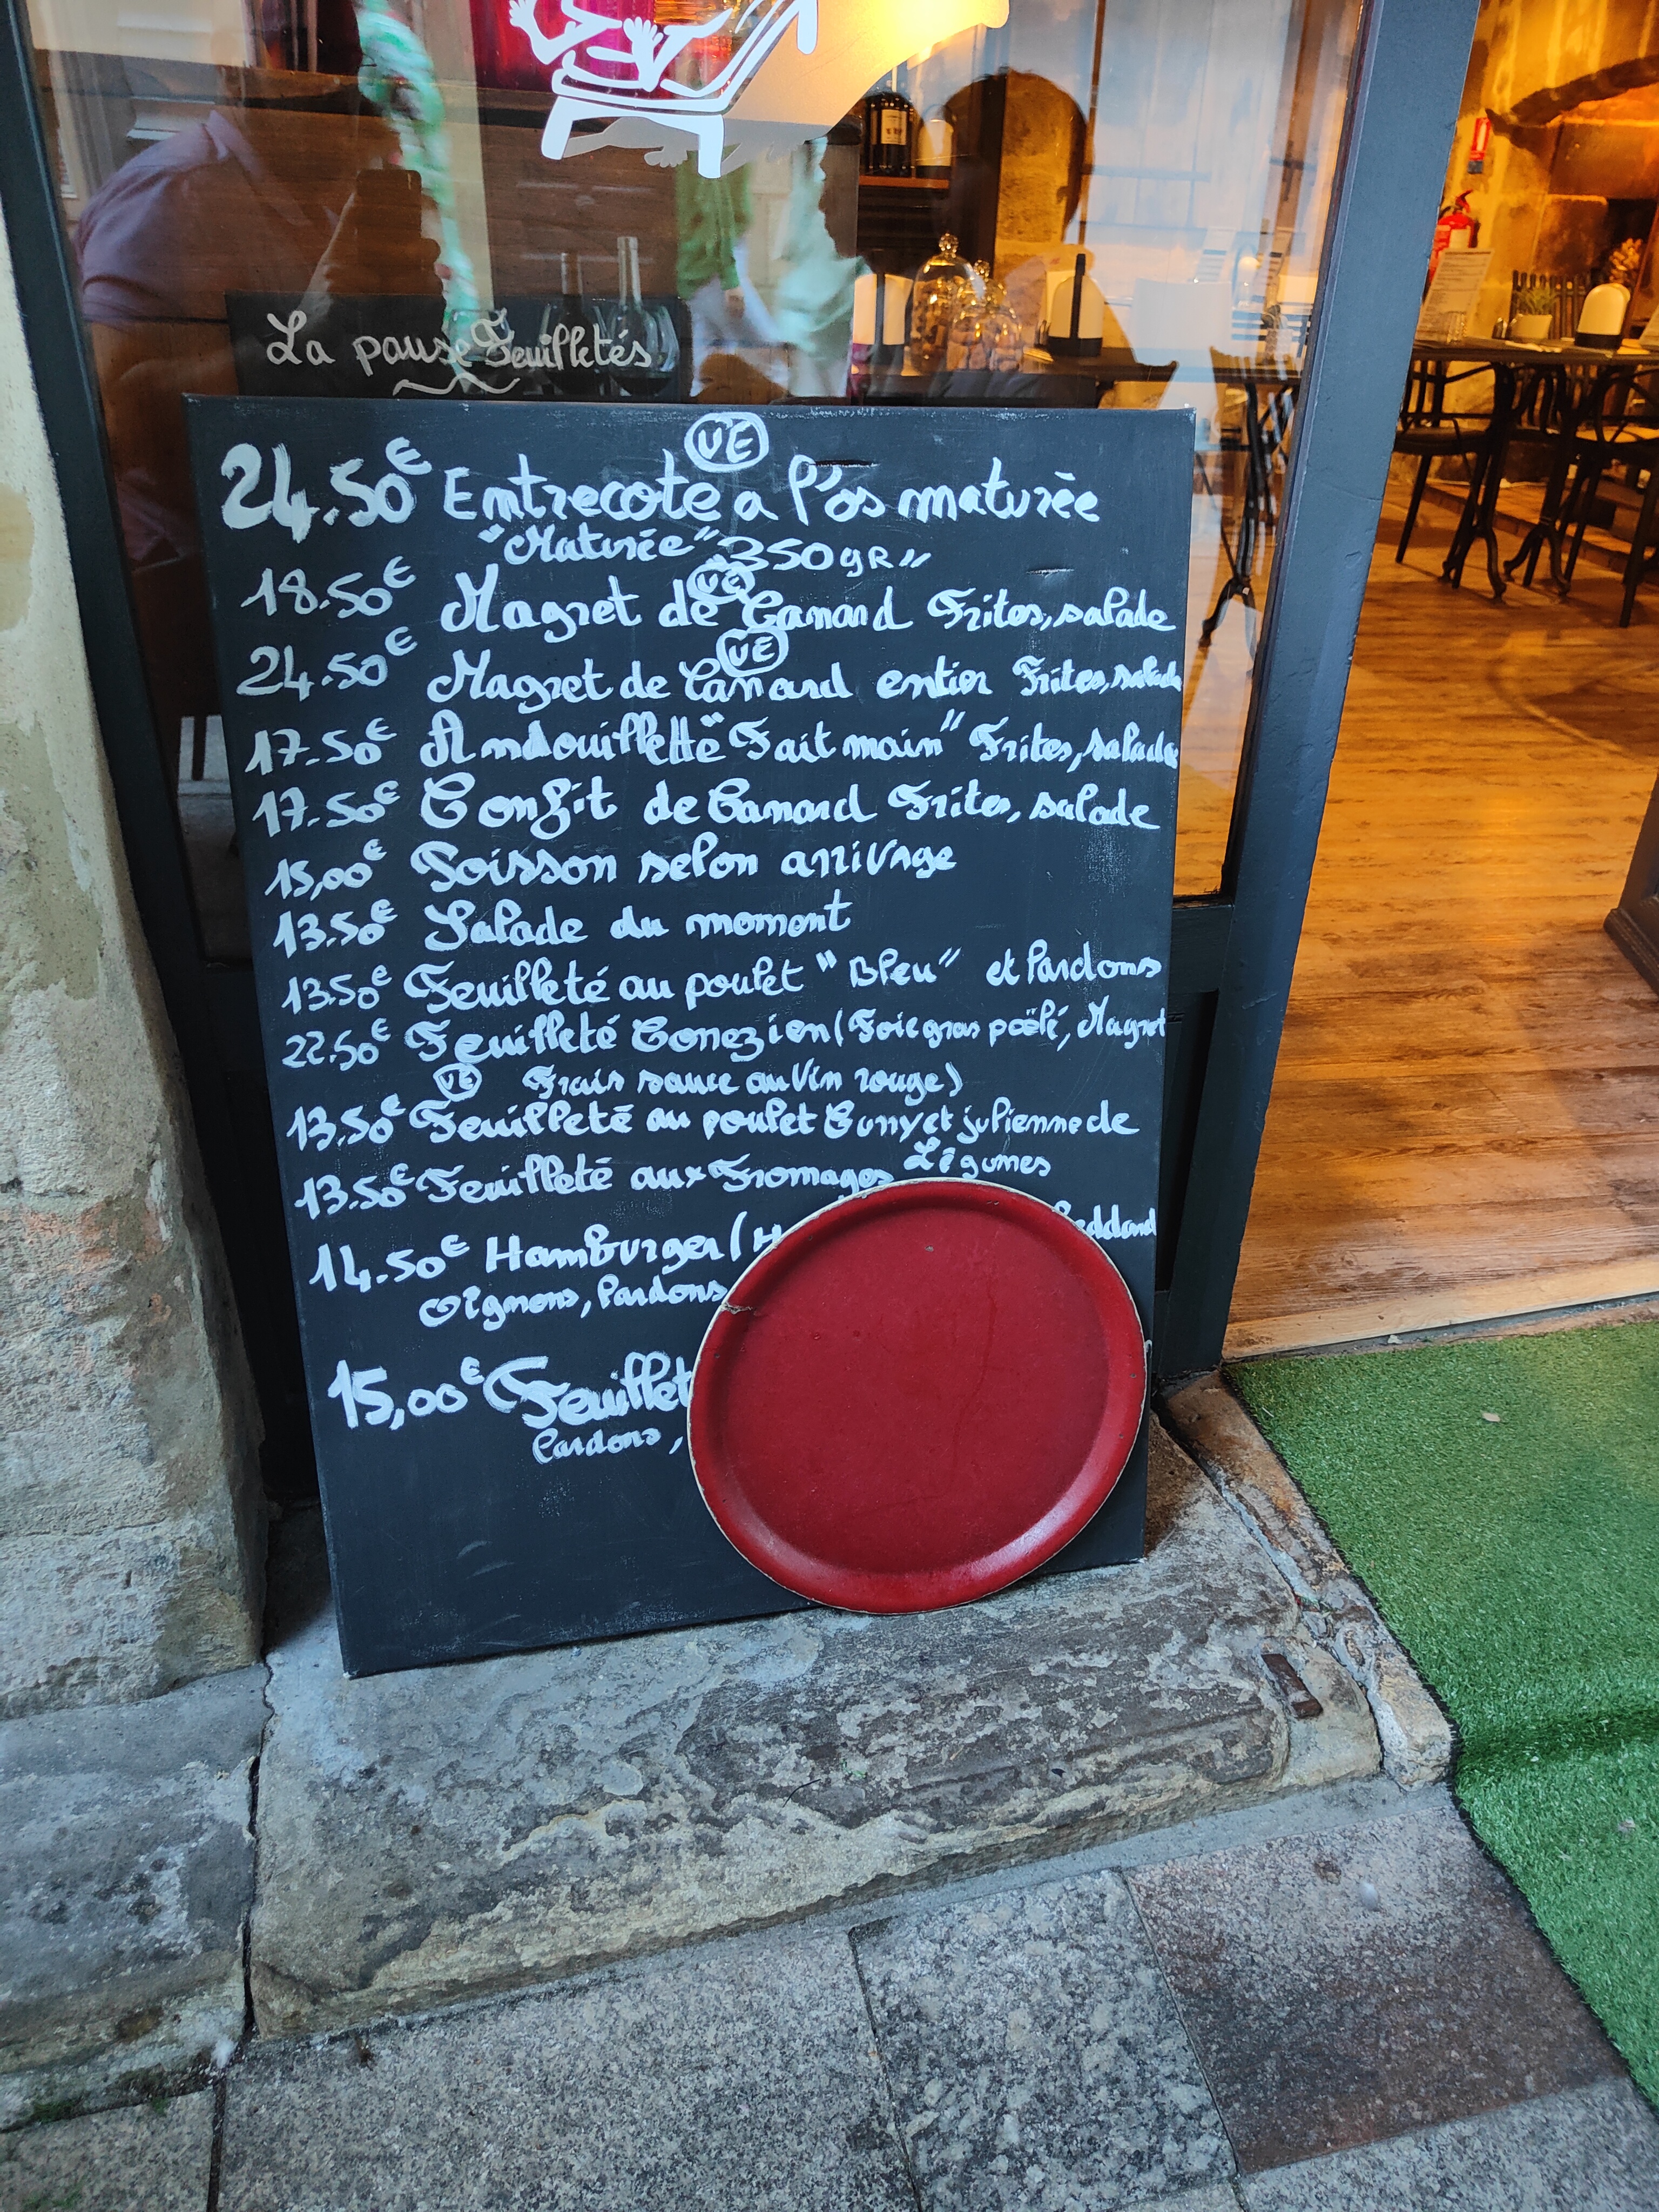 La pause Feuilletés
VE
24.50€ Entrecote a l'os maturée
"Maturée" 350gR"
VE
18.50€ Magret de Canard Frites, salade
VE
24.50€ Magret de Canard entier Frites, salade
17.50€ Andouillette "Fait main" Frites, salade
17.50€ Confit de Canard Frites, salade
15,00€ Poisson selon arrivage
13.50€ Salade du moment
13.50€ Feuilleté au poulet "Bleu" et lardons
22.50€ Feuilleté Correzien (Foie gras poêlé, Magret
VE Frais sauce au Vin rouge)
13.50€ Feuilleté au poulet Curry et julienne de
Légumes
13.50€ Feuilleté aux Fromages
14.50€ Hamburger (H
Oignons, lardons
15,00€ Feuillet
lardons,